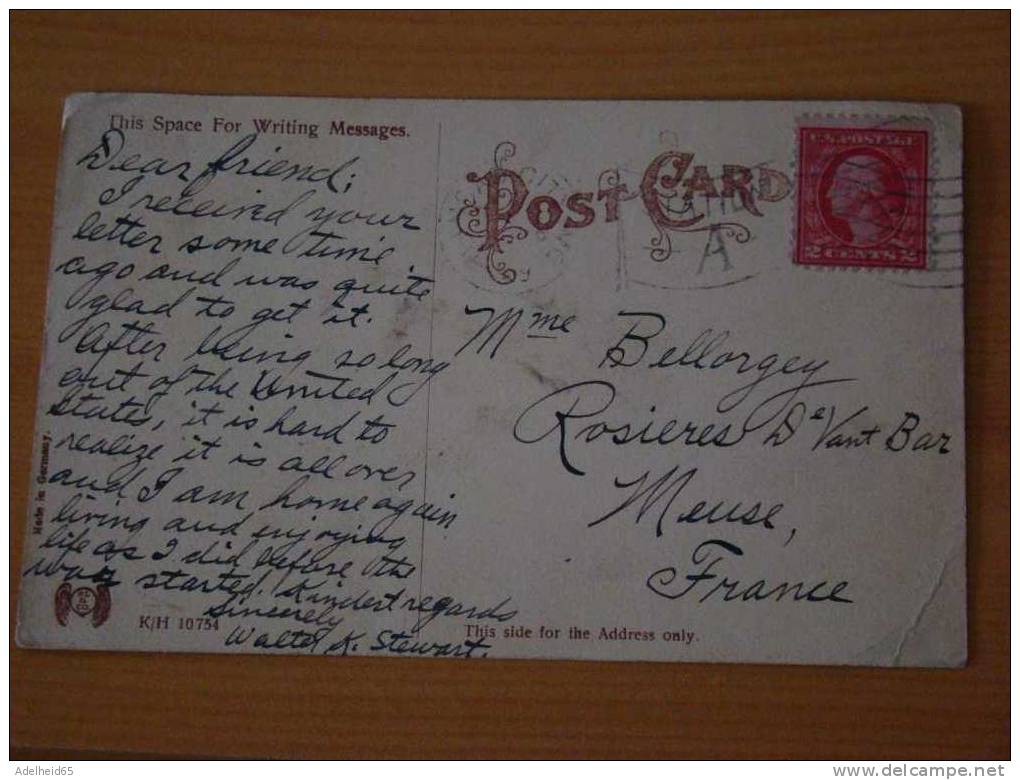 This Space For Writing Messages.
Dear friend;
I received your
letter some time
ago and was quite
glad to get it.
After being so long
out of the United
States, it is hard to
realize it is all over
and I am home again
living and enjoying
life as I did before the
war started. Kindest regards
Sincerely
Walter K. Stewart.
Made in Germany.
K/H 10754
POST CARD
A
U.S. POSTAGE
2 CENTS 2
Mme Bellorgey
Rosieres De Vant Bar
Meuse,
France
This side for the Address only.
Adelheid65
www.delcampe.net